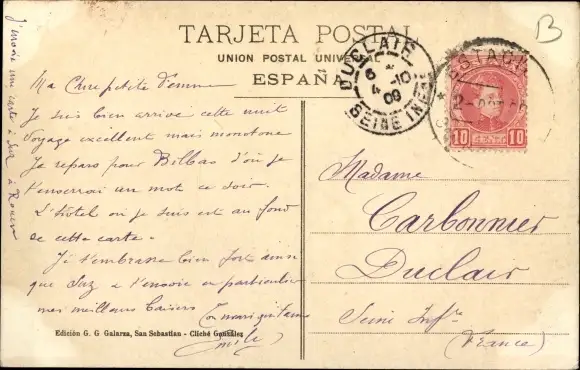 TARJETA POSTAL
UNION POSTAL UNIVERSAL
ESPAÑA
DUCLAIR
6 10
4
09
SEINE INF
10 10
J'envoie une carte à Suz à Rouen
Ma Chère petite Femme
Je suis bien arrivé cette nuit
Voyage excellent mais monotone
Je repars pour Bilbao d'où je
t'enverrai un mot ce soir.
L'hôtel où je suis est au fond
de cette carte.
Je t'embrasse bien fort ainsi
que Suz et t'envoie en particulier
mes meilleurs baisers
Ton mari qui t'aime
Emile
Madame
Carbonnier
Duclair
Seine Infre
(France)
Edición G. G. Galarza, San Sebastian - Cliché González
B